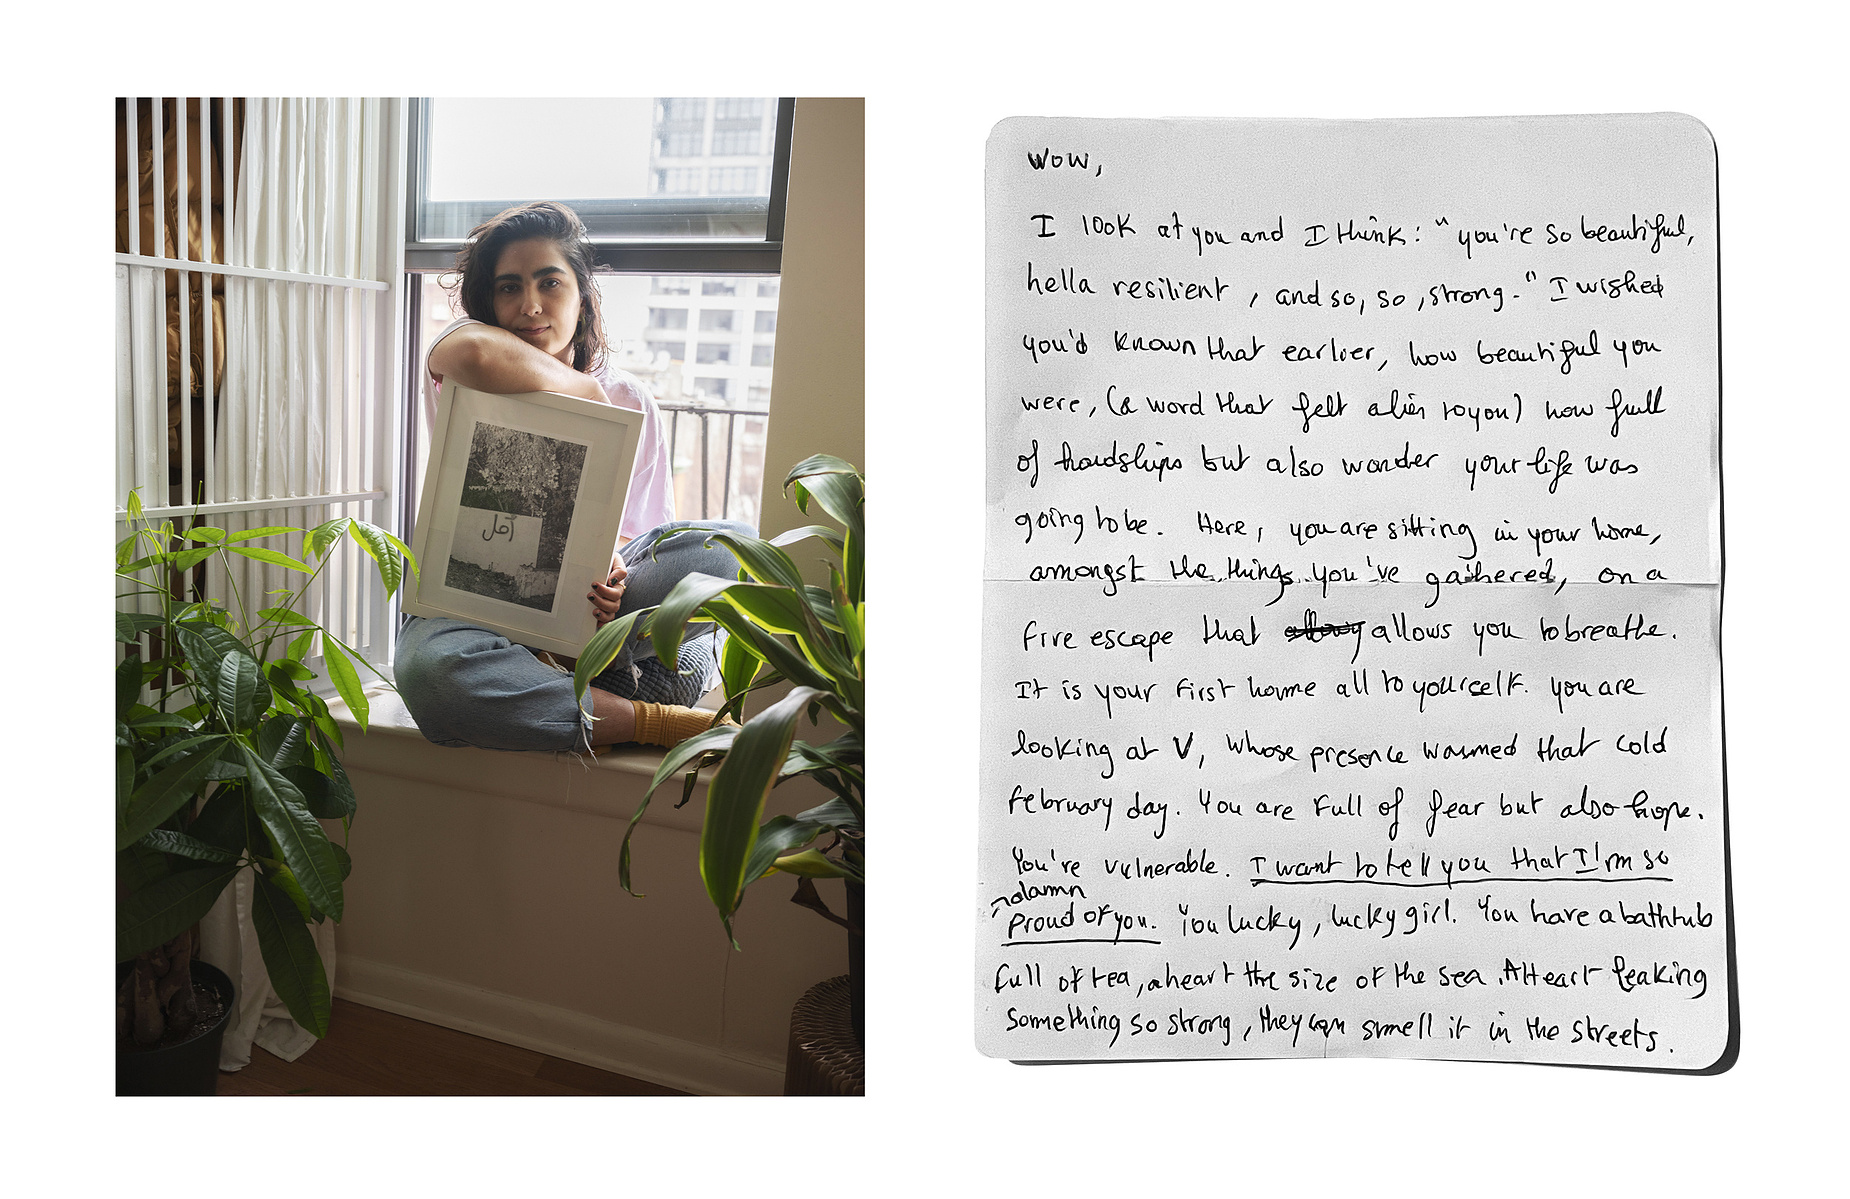 أمل
Wow,
I look at you and I think: "you're so beautiful,
hella resilient, and so, so, strong." I wished
you'd known that earlier, how beautiful you
were, (a word that felt alien to you) how full
of hardships but also wonder your life was
going to be. Here, you are sitting in your home,
amongst the things you've gathered, on a
fire escape that allows you to breathe.
It is your first home all to yourself. You are
looking at V, whose presence warmed that cold
February day. You are full of fear but also hope.
You're vulnerable. I want to tell you that I'm so
damn
proud of you. You lucky, lucky girl. You have a bathtub
full of tea, a heart the size of the sea. A Heart leaking
something so strong, they can smell it in the streets.